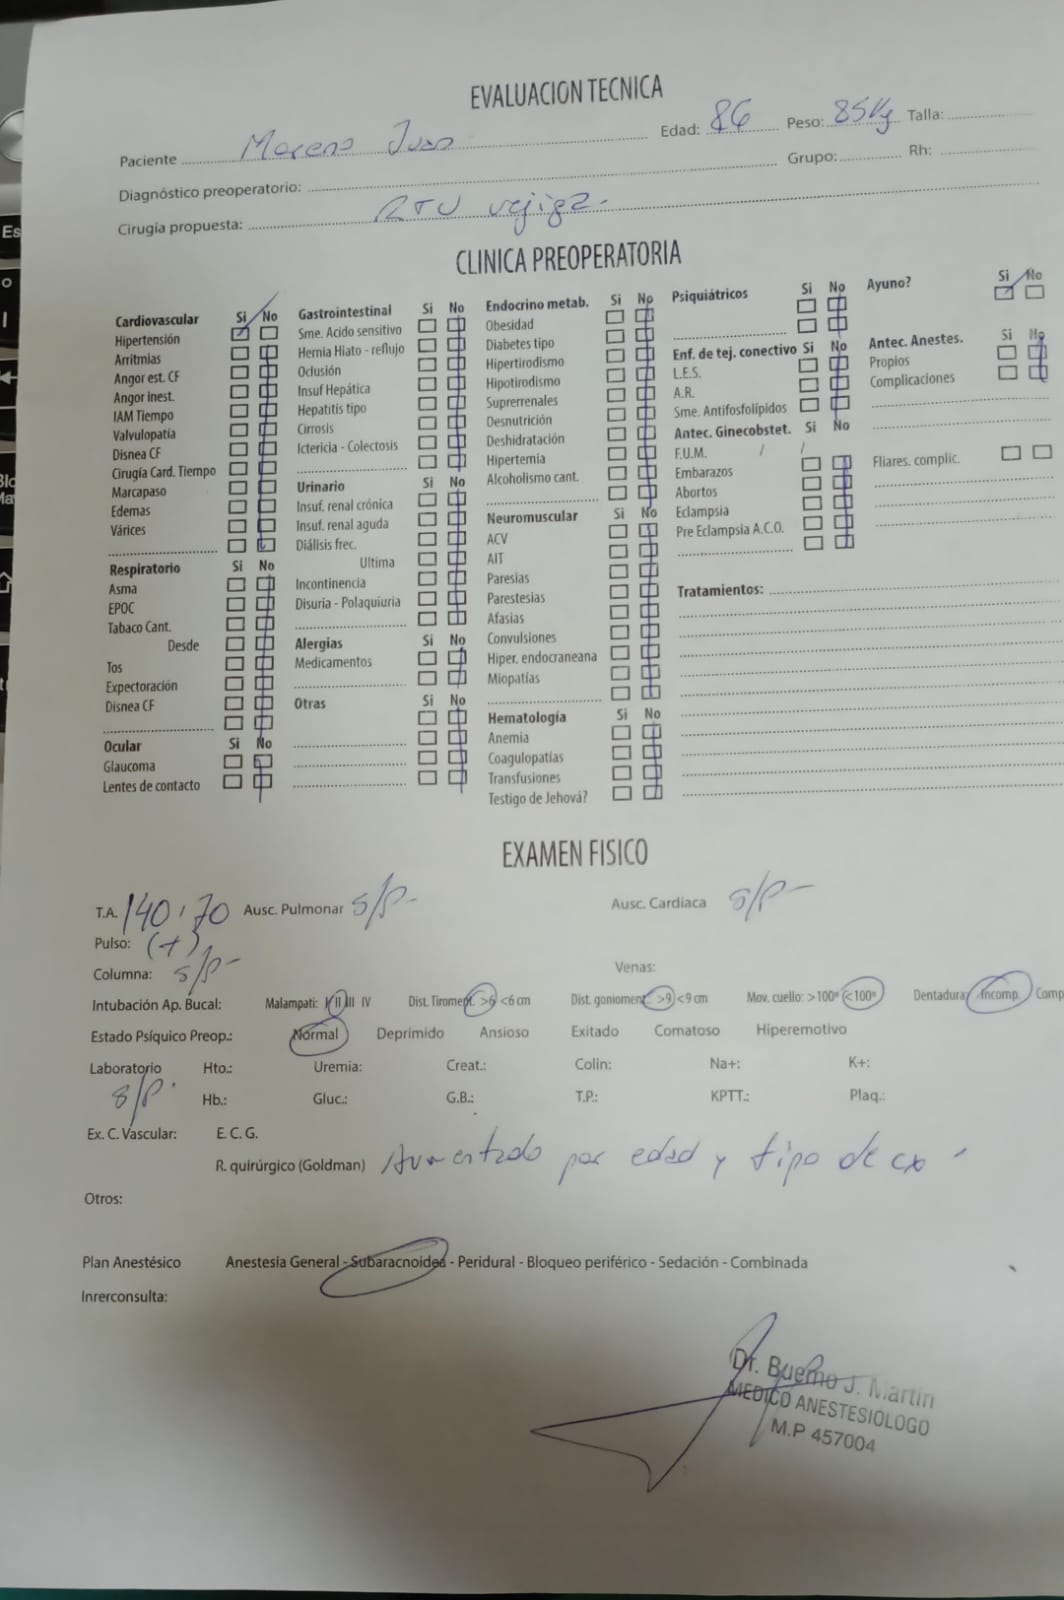 EVALUACION TECNICA
Paciente Moreno Juan Edad: 86 Peso: 85Kg Talla:
Diagnóstico preoperatorio: Grupo: Rh:
Cirugía propuesta: RTU vejiga.
CLINICA PREOPERATORIA
Cardiovascular Si No
Hipertensión
Arritmias
Angor est. CF
Angor inest.
IAM Tiempo
Valvulopatía
Disnea CF
Cirugía Card. Tiempo
Marcapaso
Edemas
Várices
Respiratorio Si No
Asma
EPOC
Tabaco Cant.
Desde
Tos
Expectoración
Disnea CF
Ocular Si No
Glaucoma
Lentes de contacto
Gastrointestinal Si No
Sme. Acido sensitivo
Hernia Hiato - reflujo
Oclusión
Insuf Hepática
Hepatitis tipo
Cirrosis
Ictericia - Colectosis
Urinario Si No
Insuf. renal crónica
Insuf. renal aguda
Diálisis frec.
Ultima
Incontinencia
Disuria - Polaquiuria
Alergias Si No
Medicamentos
Otras Si No
Endocrino metab. Si No
Obesidad
Diabetes tipo
Hipertirodismo
Hipotirodismo
Suprerrenales
Desnutrición
Deshidratación
Hipertemia
Alcoholismo cant.
Neuromuscular Si No
ACV
AIT
Paresias
Parestesias
Afasias
Convulsiones
Hiper. endocraneana
Miopatías
Hematología Si No
Anemia
Coagulopatías
Transfusiones
Testigo de Jehová?
Psiquiátricos Si No
Enf. de tej. conectivo Si No
L.E.S.
A.R.
Sme. Antifosfolípidos
Antec. Ginecobstet. Si No
F.U.M. / /
Embarazos
Abortos
Eclampsia
Pre Eclampsia A.C.O.
Ayuno? Si No
Antec. Anestes. Si No
Propios
Complicaciones
Fliares. complic.
Tratamientos:
EXAMEN FISICO
T.A. 140/70 Ausc. Pulmonar s/p- Ausc. Cardíaca s/p-
Pulso: (+)
Columna: s/p- Venas:
Intubación Ap. Bucal: Malampati: I II III IV Dist. Tiroment. >6 <6 cm Dist. gonioment. >9 <9 cm Mov. cuello: >100º <100º Dentadura: Incomp. Comp
Estado Psíquico Preop.: Normal Deprimido Ansioso Exitado Comatoso Hiperemotivo
Laboratorio Hto.: Uremia: Creat.: Colin: Na+: K+:
s/p. Hb.: Gluc.: G.B.: T.P.: KPTT.: Plaq.:
Ex. C. Vascular: E. C. G.
R. quirúrgico (Goldman) Aumentado por edad y tipo de cx
Otros:
Plan Anestésico Anestesia General - Subaracnoidea - Peridural - Bloqueo periférico - Sedación - Combinada
Inrerconsulta:
Dr. Bueno J. Martin
MEDICO ANESTESIOLOGO
M.P 457004